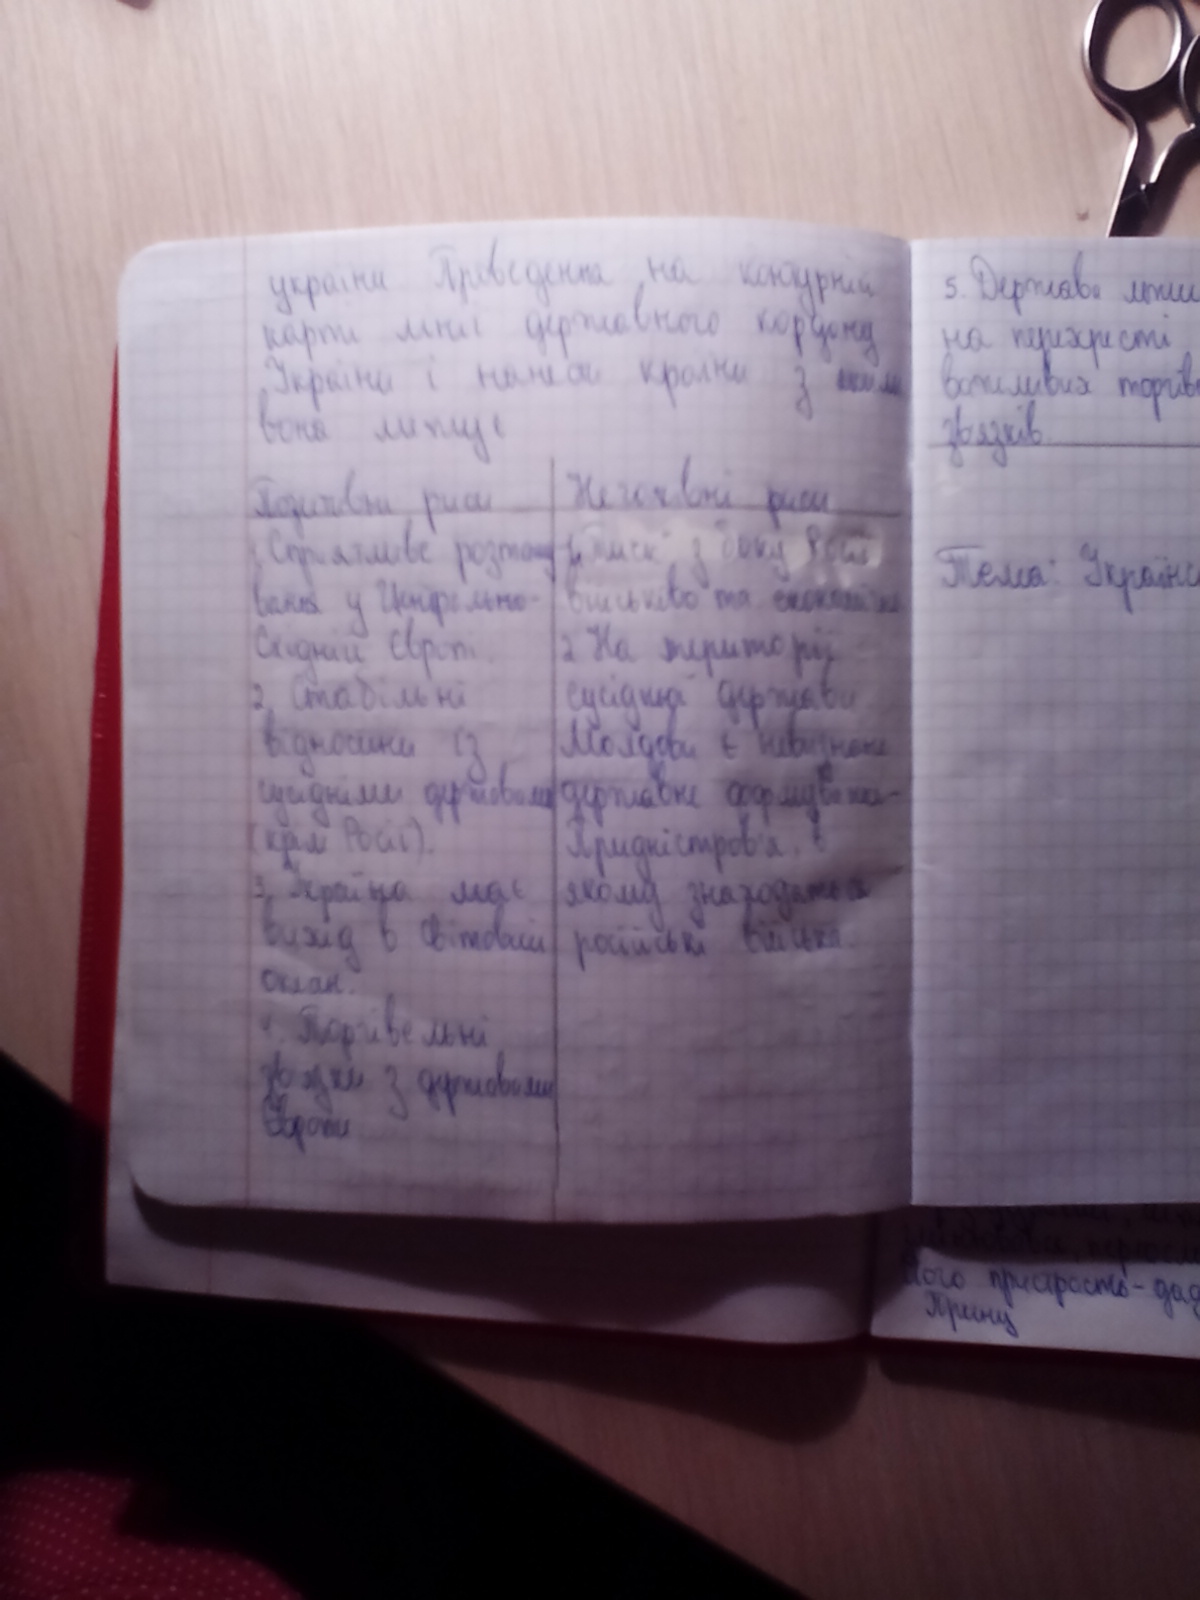 україни Проведення на контурній
карти лінії державного кордону
України і назви країни з якими
вона межує
Позитивні риси
Негативні риси
1. Сприятливе розташу
вання у Центрально-
Східній Європі.
2. Стабільні
відносини із
сусідніми державами
(крім Росії).
3. Україна має
вихід в Світовий
океан.
4. Торгівельні
звязки з державами
Європи
1. Тиск з боку Росії
військово та економічно
2 На території
сусідньої держави
Молдови є невизнане
державне формування-
Придністров'я, в
якому знаходяться
російські війська
5. Держава лежи
на перехресті
важливих торгів
звязків.
Тема: Українс
його пристрасть-
Принц